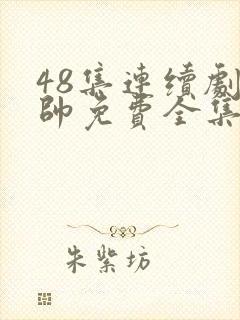 48集連續劇
帥免費全集
朱紫坊